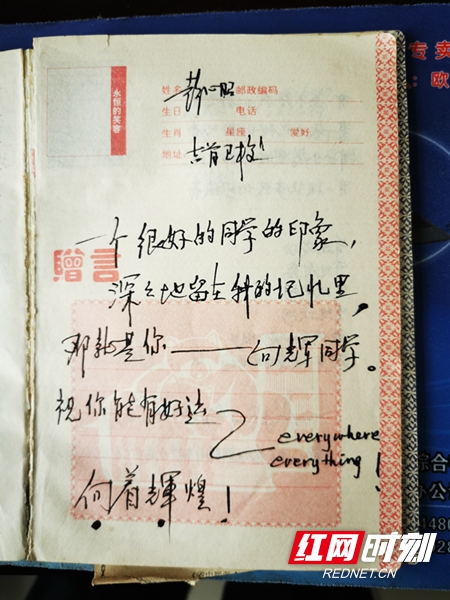 永恒的笑容
姓名 彭心昭 邮政编码
生日 电话
生肖 星座 爱好
地址 吉首卫校
赠言
一个很好的同学的印象，
深深地留在我的记忆里，
那就是你——向辉同学。
祝你能有好运
everywhere
everything!
向着輝煌！
专卖
：欧
综合
办公
4480
28
红网时刻
REDNET.CN